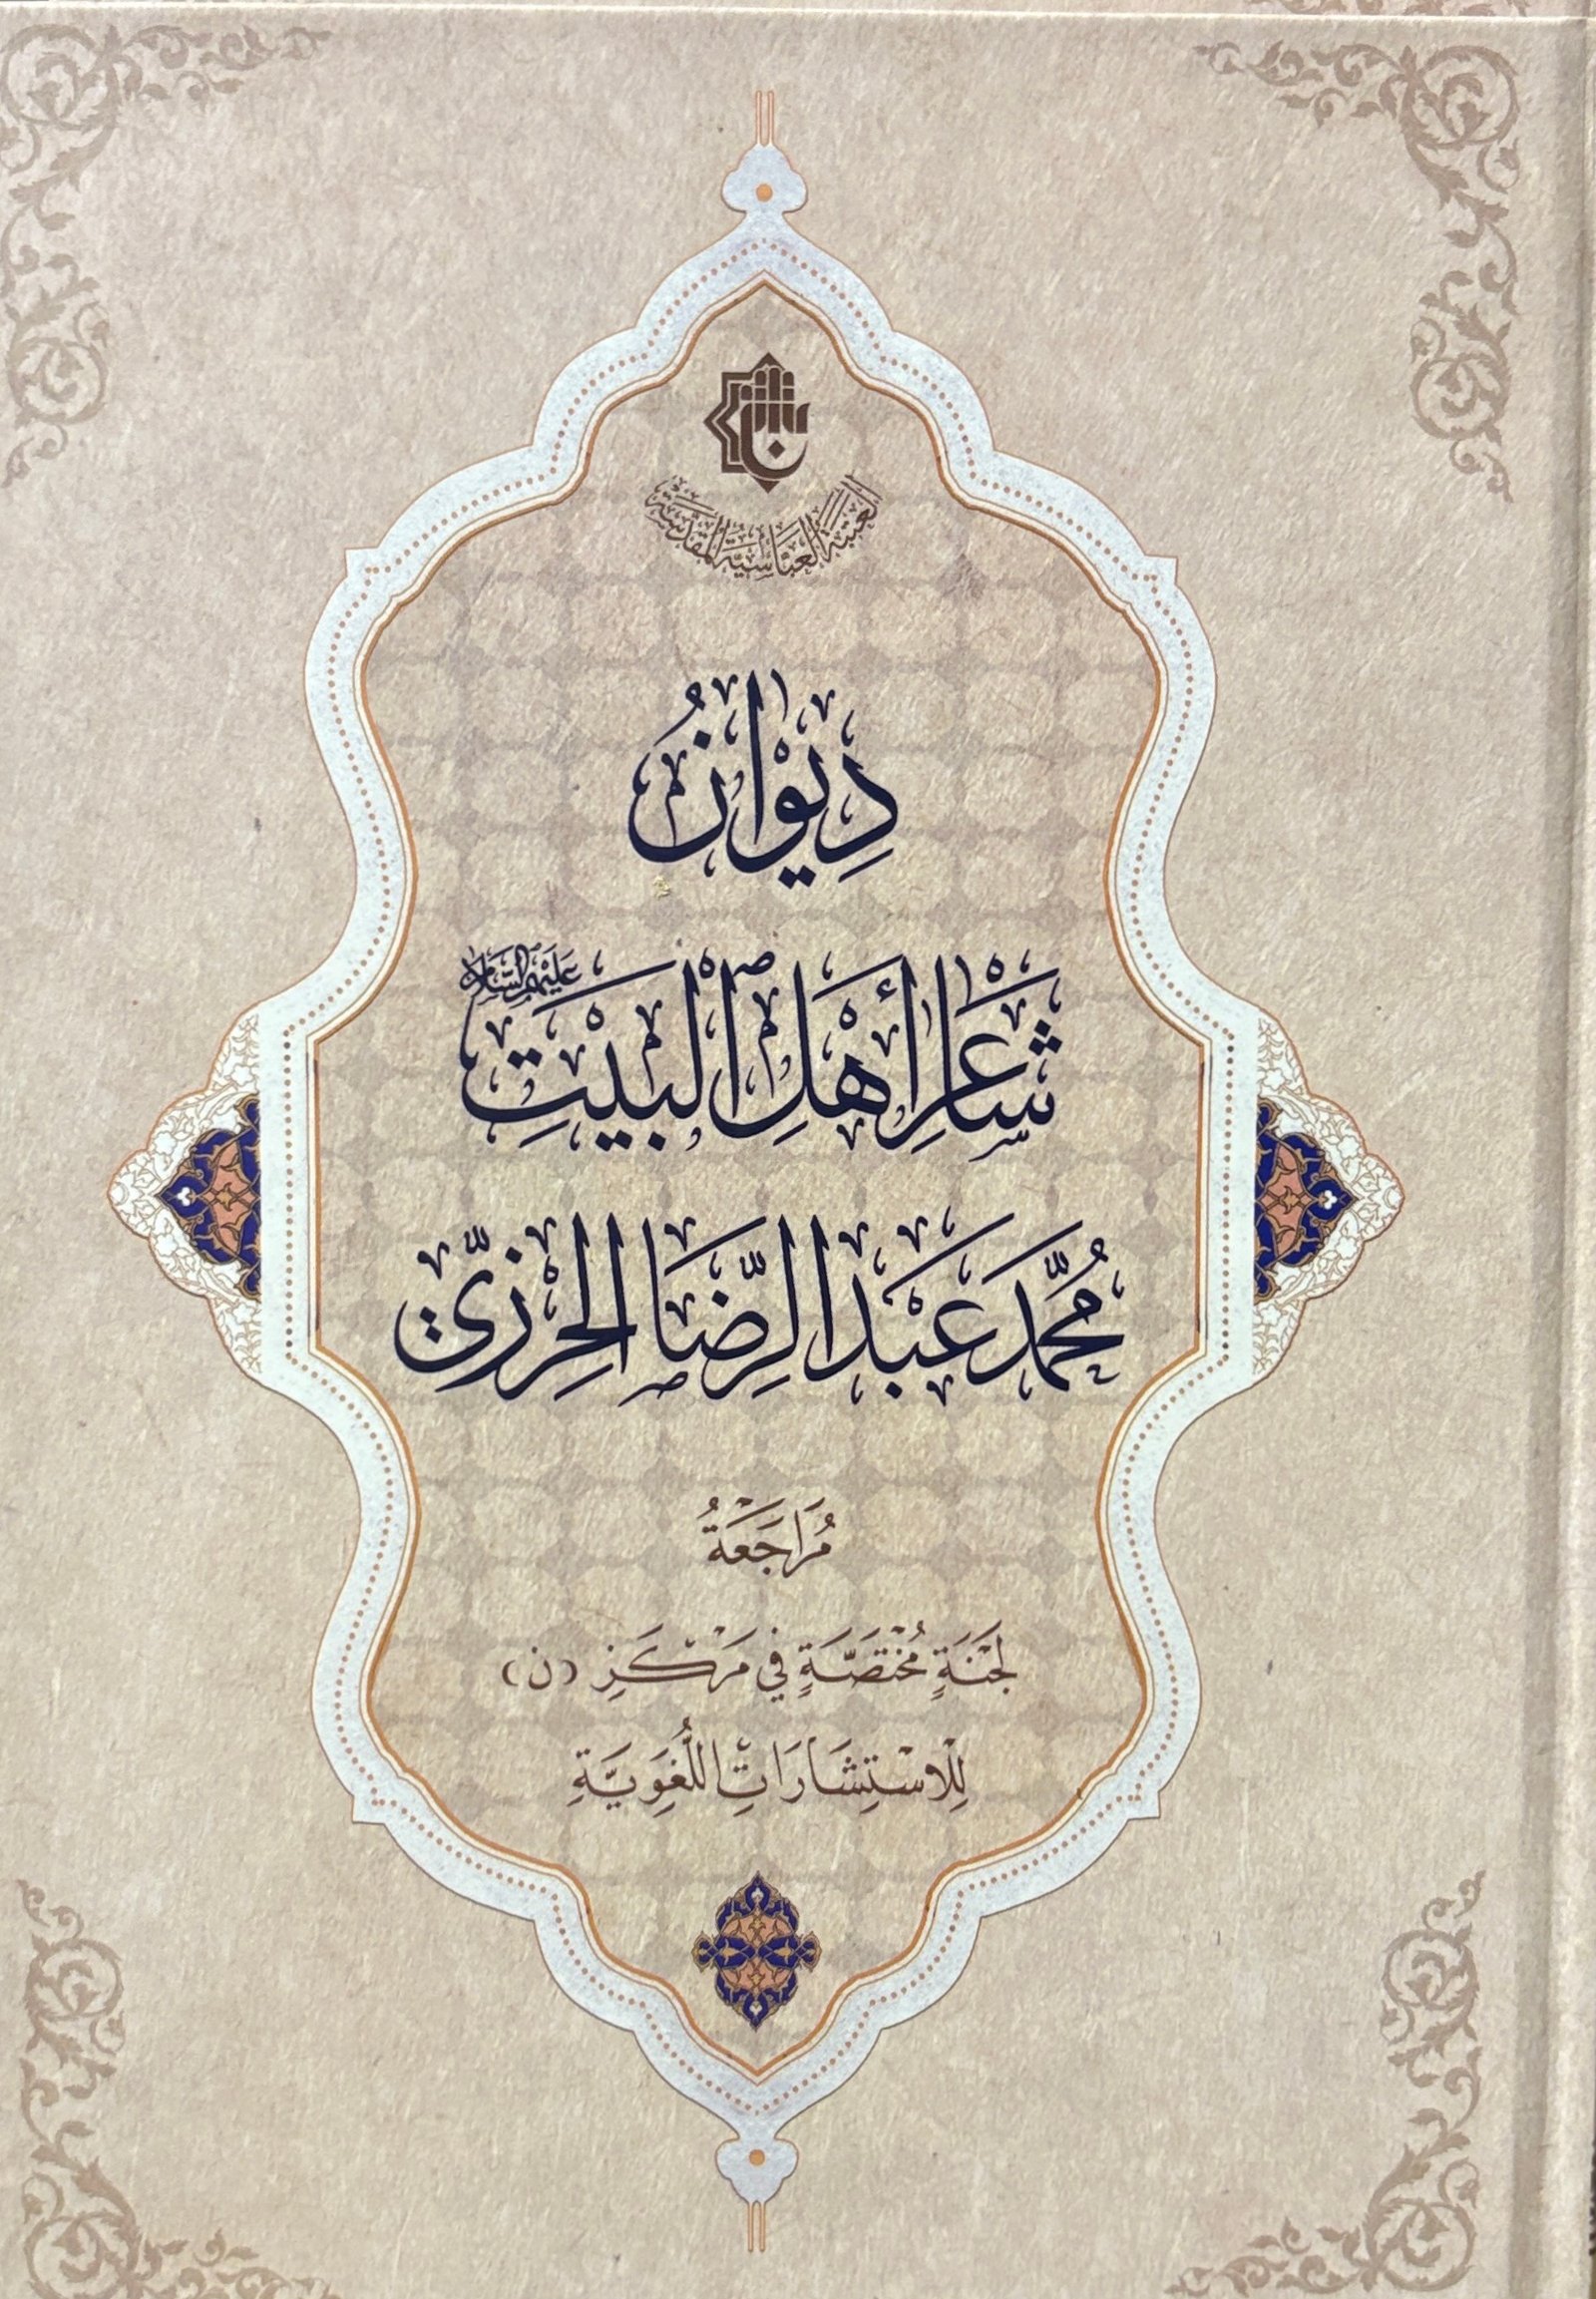 العتبة العباسية المقدسة
دِيْوَانُ
شَاعِرِ أَهْلِ الْبَيْتِ عَلَيْهِمُ السَّلَامُ
مُحَمَّد عَبْد الرِّضَا الحِرْزِيّ
مُرَاجَعَةُ
لَجْنَةٍ مُخْتَصَّةٍ فِي مَرْكَزِ (ن)
لِلْاسْتِشَارَاتِ اللُّغَوِيَّةِ